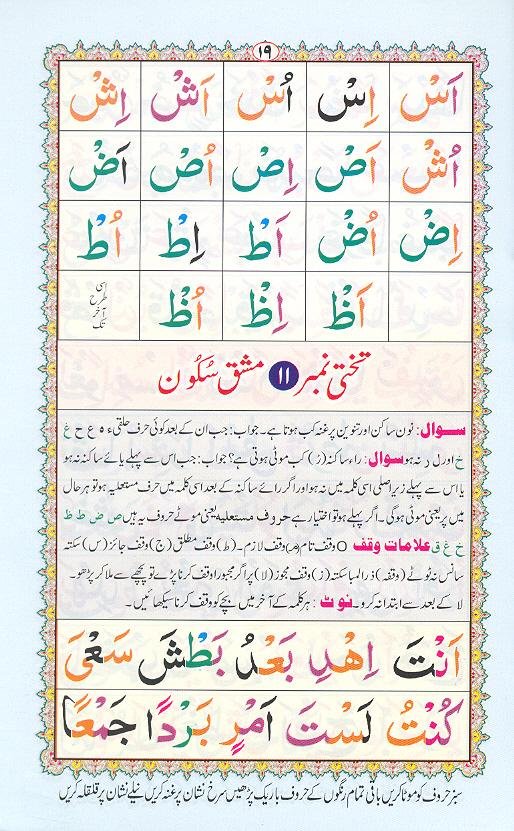 ١٩
اَسْ اِسْ اُسْ اَشْ اِشْ
اُشْ اَصْ اِصْ اُصْ اَضْ
اِضْ اُضْ اَطْ اِطْ اُطْ
اَظْ اِظْ اُظْ اسی طرح آخر تک
تختی نمبر ۱۱ مشق سُکُون
سوال: نون ساکن اور تنوین پر غنہ کب ہوتا ہے۔ جواب: جب ان کے بعد کوئی حرف حلقی ء ہ ع ح غ
خ اور ل ر نہ ہو سوال: راء ساکنہ (رْ) کب موٹی ہوتی ہے؟ جواب: جب اس سے پہلے یائے ساکنہ نہ ہو
یا اس سے پہلے زیر اصلی اسی کلمہ میں نہ ہو اور اگر رائے ساکنہ کے بعد اسی کلمہ میں حرف مستعلیہ ہو تو ہر حال
میں پُر یعنی موٹی ہوگی۔ اگر پہلے ہو تو اختیار ہے حروف مستعلیہ یعنی موٹے حروف یہ ہیں ص ض ط ظ
خ غ ق علامات وقف O وقف تام (مـ) وقف لازم۔ (ط) وقف مطلق (ج) وقف جائز (س) سکتہ
سانس نہ ٹوٹے (وقفہ) ذرا لمبا سکتہ (ز) وقف مجوز (لا) پر اگر مجبورا وقف کرنا پڑے تو پیچھے سے ملا کر پڑھو۔
لا کے بعد سے ابتدا نہ کرو۔ نوٹ: ہر کلمہ کے آخر میں بچے کو وقف کرنا سیکھائیں۔
اَنْتَ اِهْدِ بَعْدُ بَطْشَ سَعْیَ
كُنْتُ لَسْتَ اَمْرٍ بَرْدًا جَمْعًا
سبز حروف کو موٹا کریں باقی تمام رنگوں کے حروف باریک پڑھیں سرخ نشان پر غنہ کریں نیلے نشان پر قلقلہ کریں